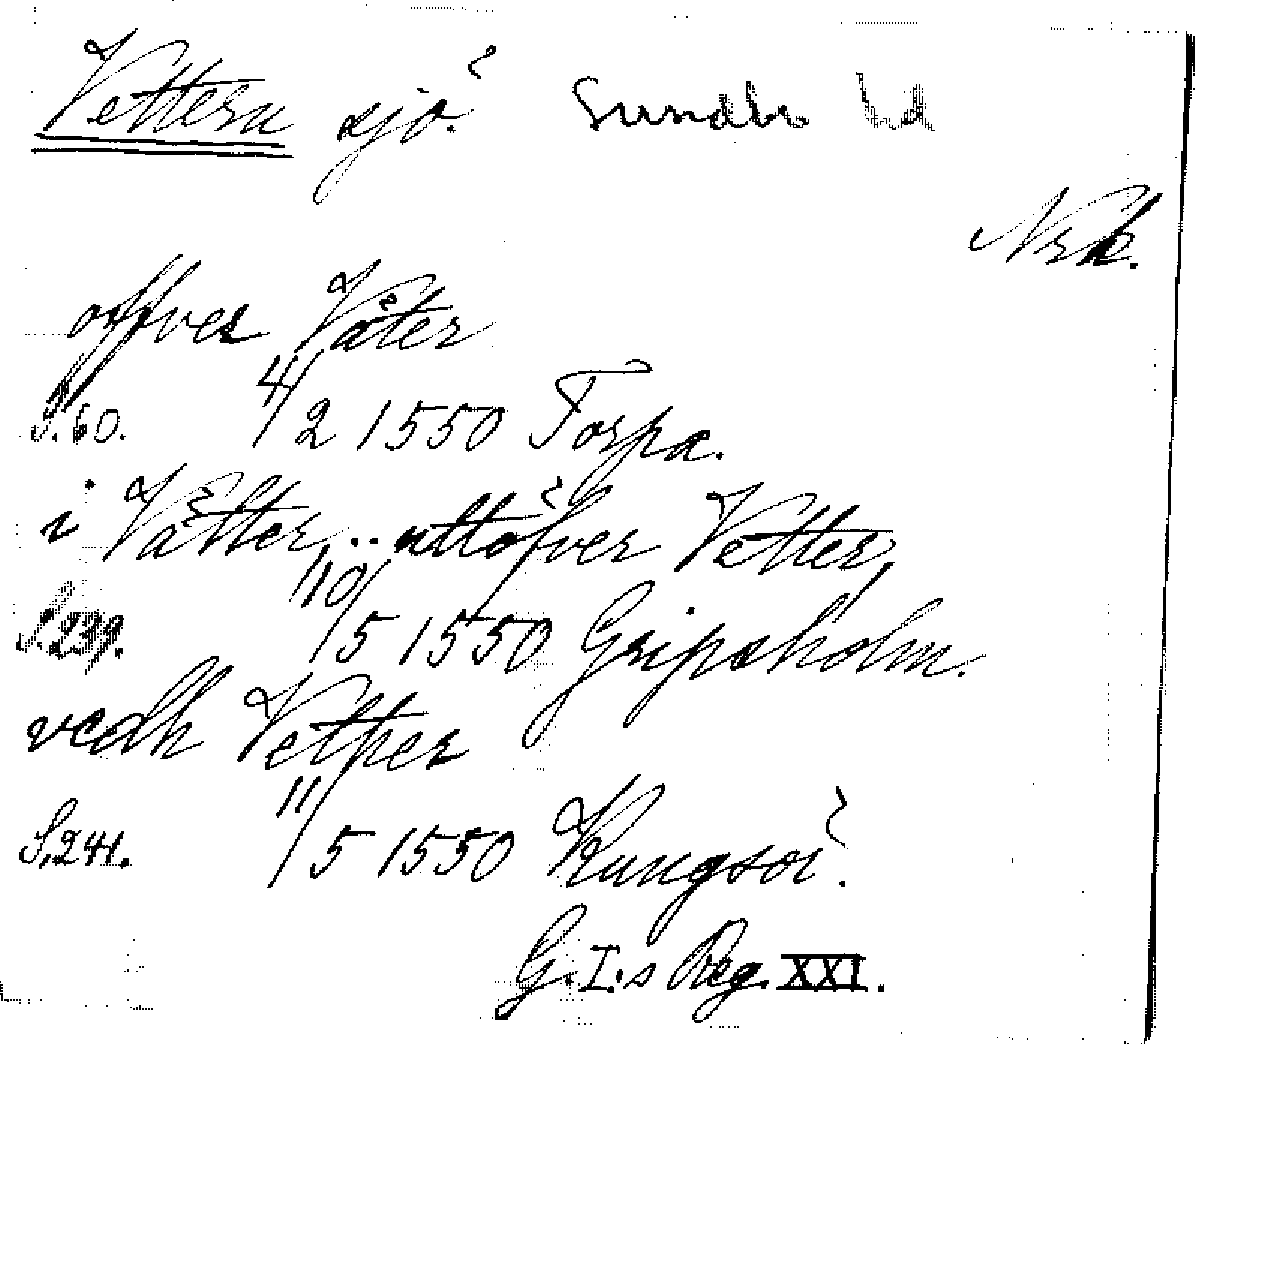 Vettern sjö. Sundbo hd
Nrk.
offver Våter
S. 60. 4/2 1550 Torpa.
i Våtter... uttöfver Vetter
S. 239. 10/5 1550 Gripsholm.
vedh Vetther
S. 241. 11/5 1550 Kungsör.
G. I:s Reg. XXI.